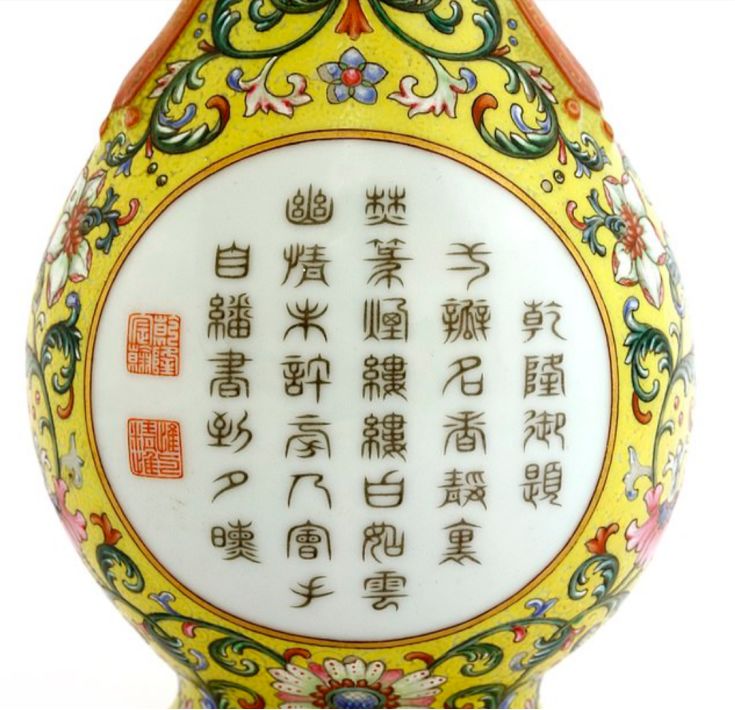 乾隆御題
瓣名香靜裏
焚篆煙縷縷白如雲
幽情未許會手
自繙書到夕曛
乾隆宸翰
惟精惟一